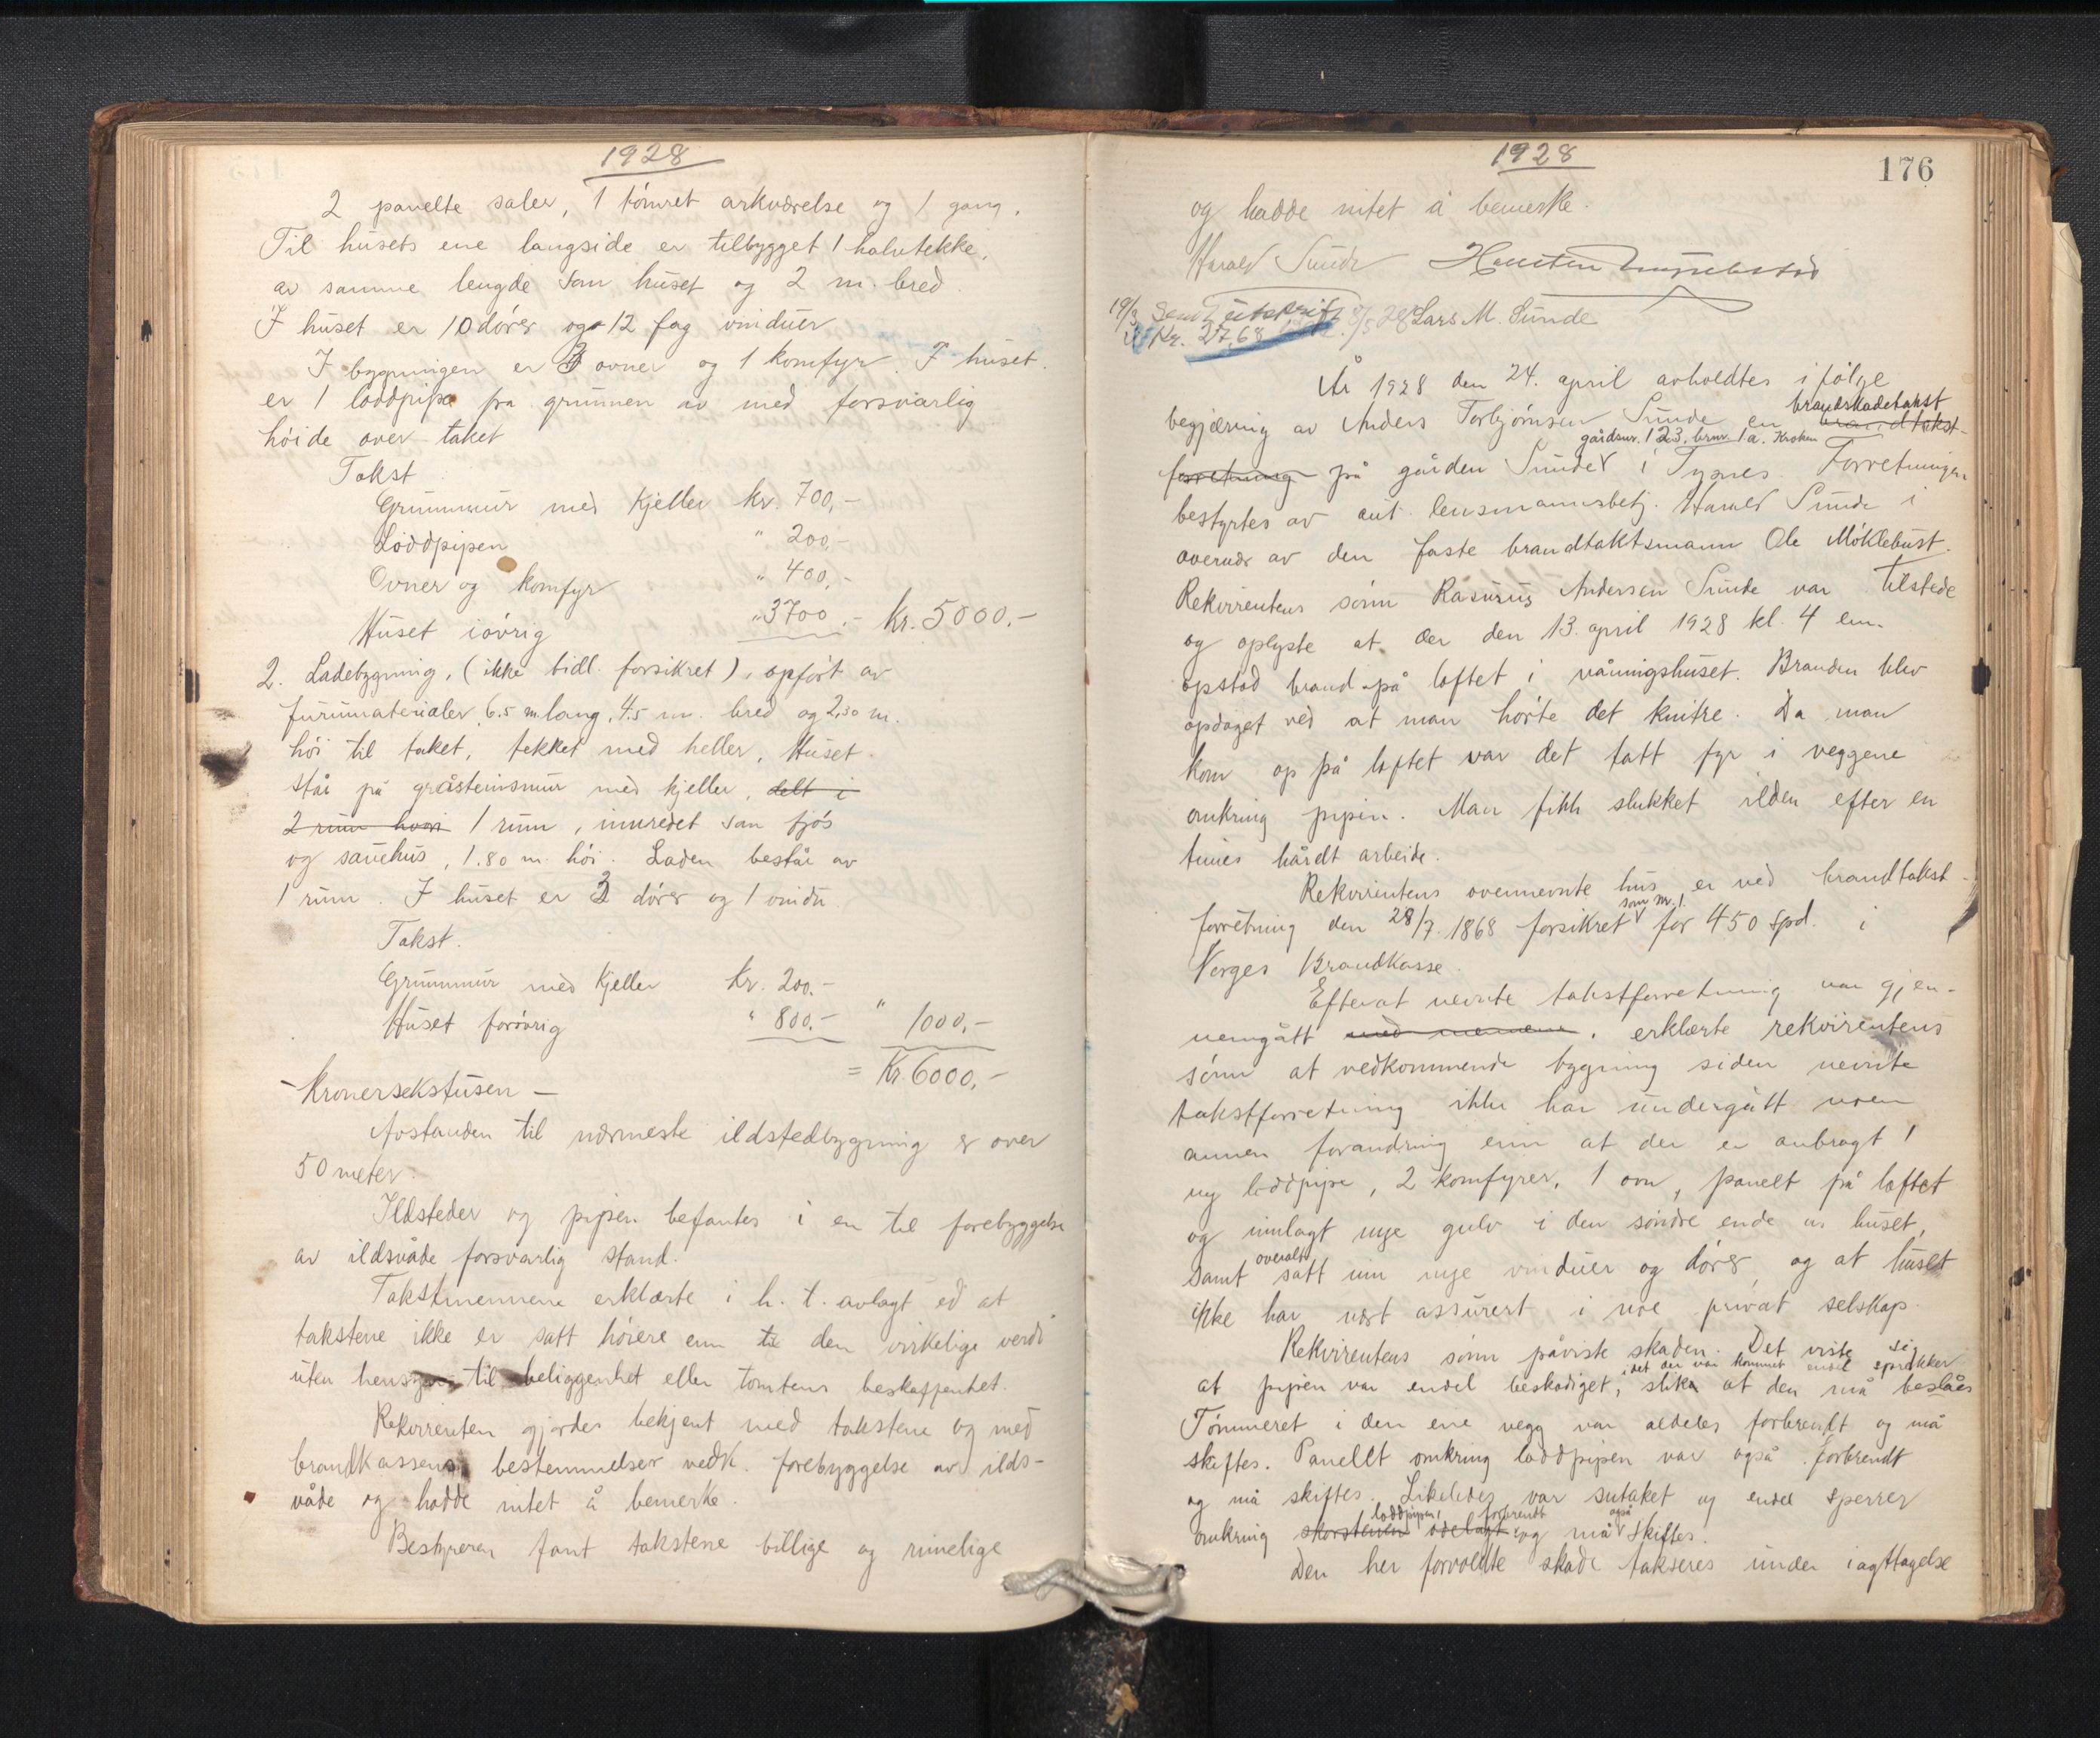 1928
2 panelte saler, 1 tömret arkværelse og 1 gang.
Til husets ene langside er tilbygget 1 halvtekke,
av samme lengde som huset og 2 m. bred.
I huset er 10 dörer og 12 fag vinduer
I bygningen er 3 ovner og 1 komfyr. I huset
er 1 loddpipe fra grunnen av med forsvarlig
höide over taket
Takst
Grunnmur med kjeller kr. 700,-
Loddpipen " 200,-
Ovner og komfyr " 400,-
Huset iövrig " 3700,- Kr. 5000.-
2. Ladebygning, (ikke tidl. forsikret), opfört av
furumaterialer, 6.5 m lang, 4.5 m. bred og 2,30 m.
höi til taket, tekket med heller. Huset
står på gråsteinsmur med kjeller, delt i
2 rum hvori 1 rum, innredet som fjös
og sauehus, 1.80 m. höi. Laden består av
1 rum. I huset er 3 dörer og 1 vindu.
Takst.
Grunnmur med kjeller kr. 200.-
Huset forövrig " 800.- " 1000,-
= Kr. 6000,-
- Kronersekstusen -
Avstanden til nærmeste ildstedbygning er over
50 meter.
Ildsteder og pipen befantes i en til forebyggelse
av ildsvåde forsvarlig stand.
Takstmennene erklærte i h. t. avlagt ed at
takstene ikke er satt höiere enn til den virkelige verdi
uten hensyn til beliggenhet eller tomtens beskaffenhet.
Rekvirenten gjordes bekjent med takstene og med
brandkassens bestemmelser vedk. forebyggelse av ilds-
våde og hadde intet å bemerke.
Bestyreren fant takstene billige og rimelige
1928
176
og hadde intet å bemerke.
Harald Sunde
19/3 Sendt utskrift 8/5 28 Lars M. Sunde
Kr. 27,68
År 1928 den 24. april avholdtes i fölge
brandskadetakst
begjæring av Anders Torbjörnsen Sunde en brandtakst-
gårdsnr. 123, brnr. 1a. Kroken
forretning på gården Sunde i Tysnes. Forretningen
bestyrtes av aut. lensmannsbetj. Harald Sunde i
overvær av den faste brandtakstsmann Ole Möklebust.
Rekvirentens sönn Rasmus Andersen Sunde var tilstede
og oplyste at der den 13. april 1928 kl. 4 em.
opstod brand på loftet i våningshuset. Branden blev
opdaget ved at man hörte det knitre. Da man
kom op på loftet var det tatt fyr i veggene
omkring pipen. Man fikk slukket ilden efter en
times hårdt arbeide.
Rekvirentens ovennevnte hus er ved brandtakst-
som nr. 1
forretning den 28/7. 1868 forsikret for 450 spd. i
Norges Brandkasse.
Efterat nevnte takstforretning var gjen-
nemgått med mennene, erklærte rekvirentens
sönn at vedkommende bygning siden nevnte
takstforretning ikke har undergått noen
annen forandring enn at der er anbragt 1
ny loddpipe, 2 komfyrer, 1 ovn, panelt på loftet
og innlagt nye gulv i den söndre ende av huset,
overalt
samt satt inn nye vinduer og dörer, og at huset
ikke har vært assurert i noe privat selskap.
Rekvirentens sönn påviste skaden. Det viste sig
idet der var kommet endel sprekker
at pipen var endel beskadiget, slik at den må beslåes
Tömmeret i den ene vegg var aldeles forbrendt og må
skiftes. Panellt omkring loddpipen var også forbrendt
og må skiftes. Likeledes var sutaket og endel sperrer
loddpipen, forbrendt også
omkring skorstenen ödelagt og må skiftes.
Den her forvoldte skade takseres under iagttagelse